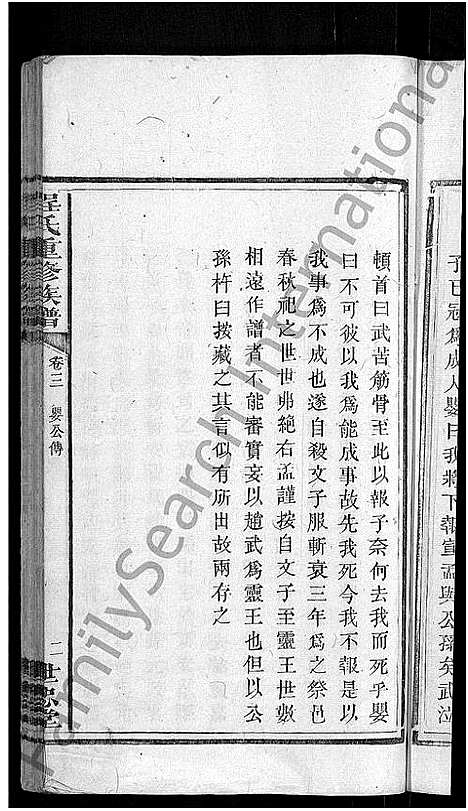 子已冠爲成人嬰曰我將下報宣孟與公孫矣武泣
頓首曰武苦筋骨至此以報子奈何去我而死乎嬰
曰不可彼以我爲能成事故先我死今我不報是以
我事爲不成也遂自殺文子服斬衰三年爲之祭邑
春秋祀之世世弗絶右孟謹按自文子至靈王世數
相遠作譜者不能審實妄以趙武爲靈王也但以公
孫杵臼按藏之其言似有所出故兩存之
程氏重修族譜
卷三
嬰公傳
二
世忠堂
FamilySearch International